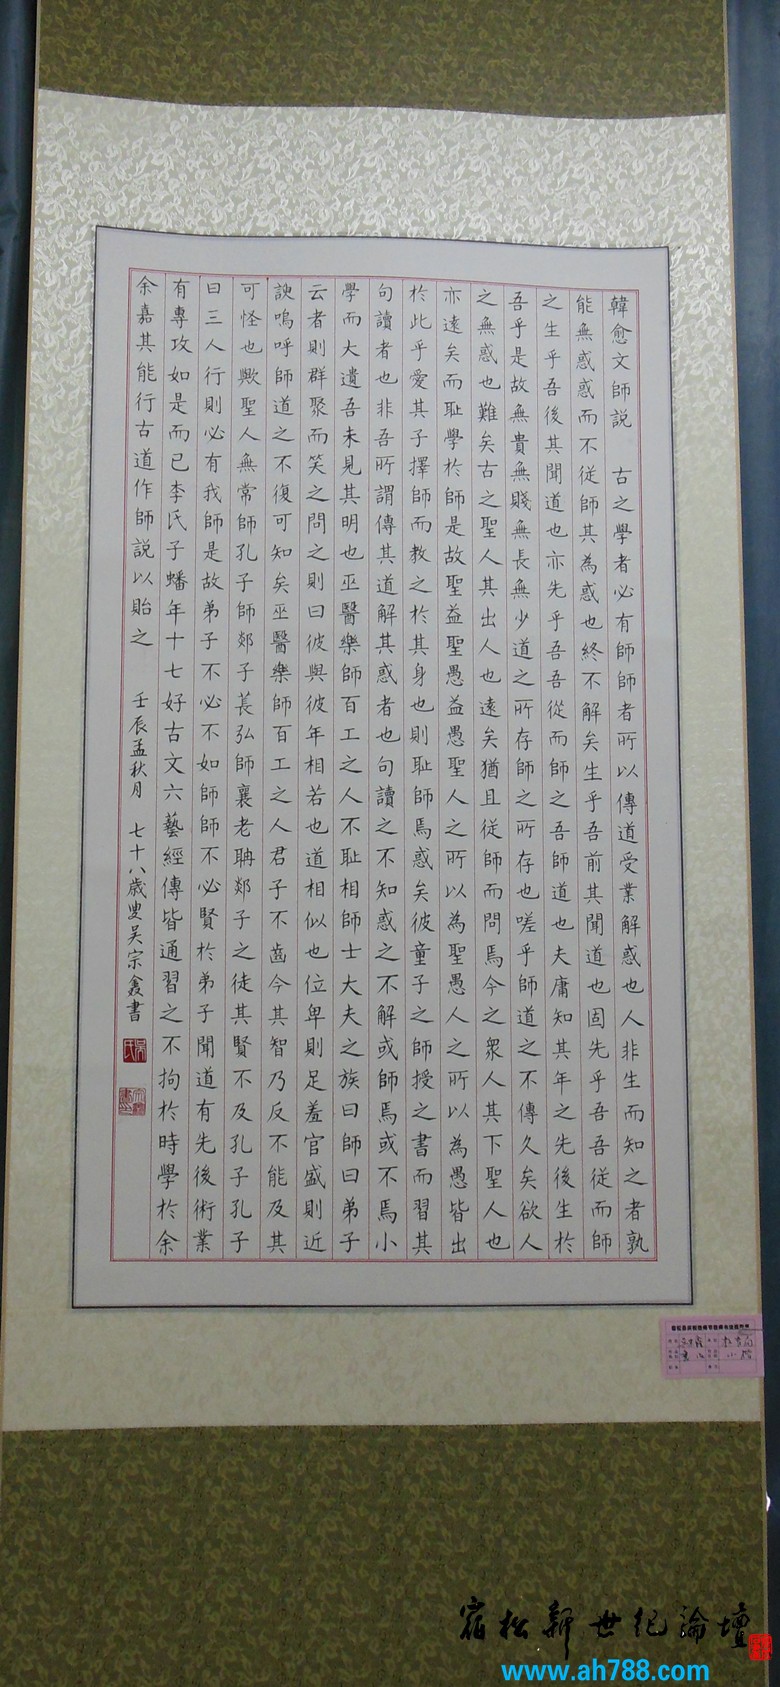 韓愈文師説　古之學者必有師師者所以傳道受業解惑也人非生而知之者孰
能無惑惑而不從師其為惑也終不解矣生乎吾前其聞道也固先乎吾吾從而師
之生乎吾後其聞道也亦先乎吾吾從而師之吾師道也夫庸知其年之先後生於
吾乎是故無貴無賤無長無少道之所存師之所存也嗟乎師道之不傳久矣欲人
之無惑也難矣古之聖人其出人也遠矣猶且從師而問焉今之衆人其下聖人也
亦遠矣而耻學於師是故聖益聖愚益愚聖人之所以為聖愚人之所以為愚皆出
於此乎愛其子擇師而教之於其身也則耻師焉惑矣彼童子之師授之書而習其
句讀者也非吾所謂傳其道解其惑者也句讀之不知惑之不解或師焉或不焉小
學而大遺吾未見其明也巫醫樂師百工之人不耻相師士大夫之族曰師曰弟子
云者則群聚而笑之問之則曰彼與彼年相若也道相似也位卑則足羞官盛則近
諛嗚呼師道之不復可知矣巫醫樂師百工之人君子不齒今其智乃反不能及其
可怪也歟聖人無常師孔子師郯子萇弘師襄老聃郯子之徒其賢不及孔子孔子
曰三人行則必有我師是故弟子不必不如師師不必賢於弟子聞道有先後術業
有專攻如是而已李氏子蟠年十七好古文六藝經傳皆通習之不拘於時學於余
余嘉其能行古道作師説以貽之　壬辰孟秋月　七十八歲叟吴宗鑫書
宿松新世纪論壇
www.ah788.com